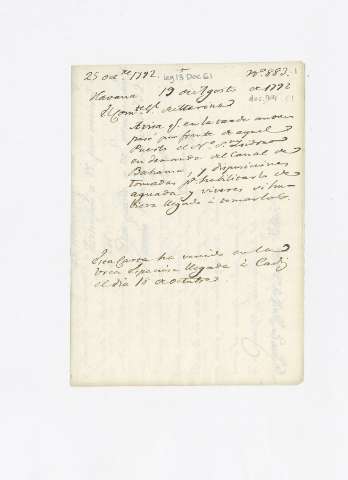 25 oct.re 1792 leg 13 Doc 61 Nº 883.
Havana 19 de Agosto de 1792
El Com.te G.l de Marina
Avisa q.e en la tarde
pasó por frente de aquel
Puerto el N.º S.n Isidoro
en demanda del Canal de
Bahama, y disposiciones
tomadas p.a habilitarlo de
aguada y viveres si hu
biera llegado à tomarlo.
Esta carta ha venido en la
Urca llegada à Cadiz
el dia 18 de octubre